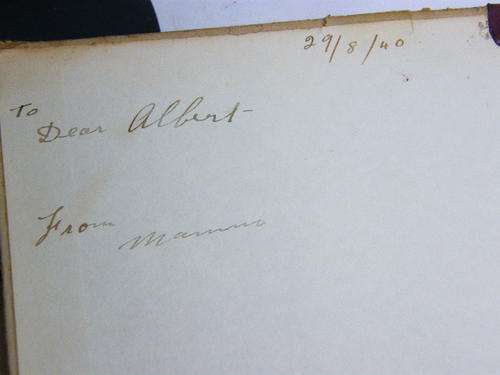 29/8/40
To
Dear Albert
From
Mamma